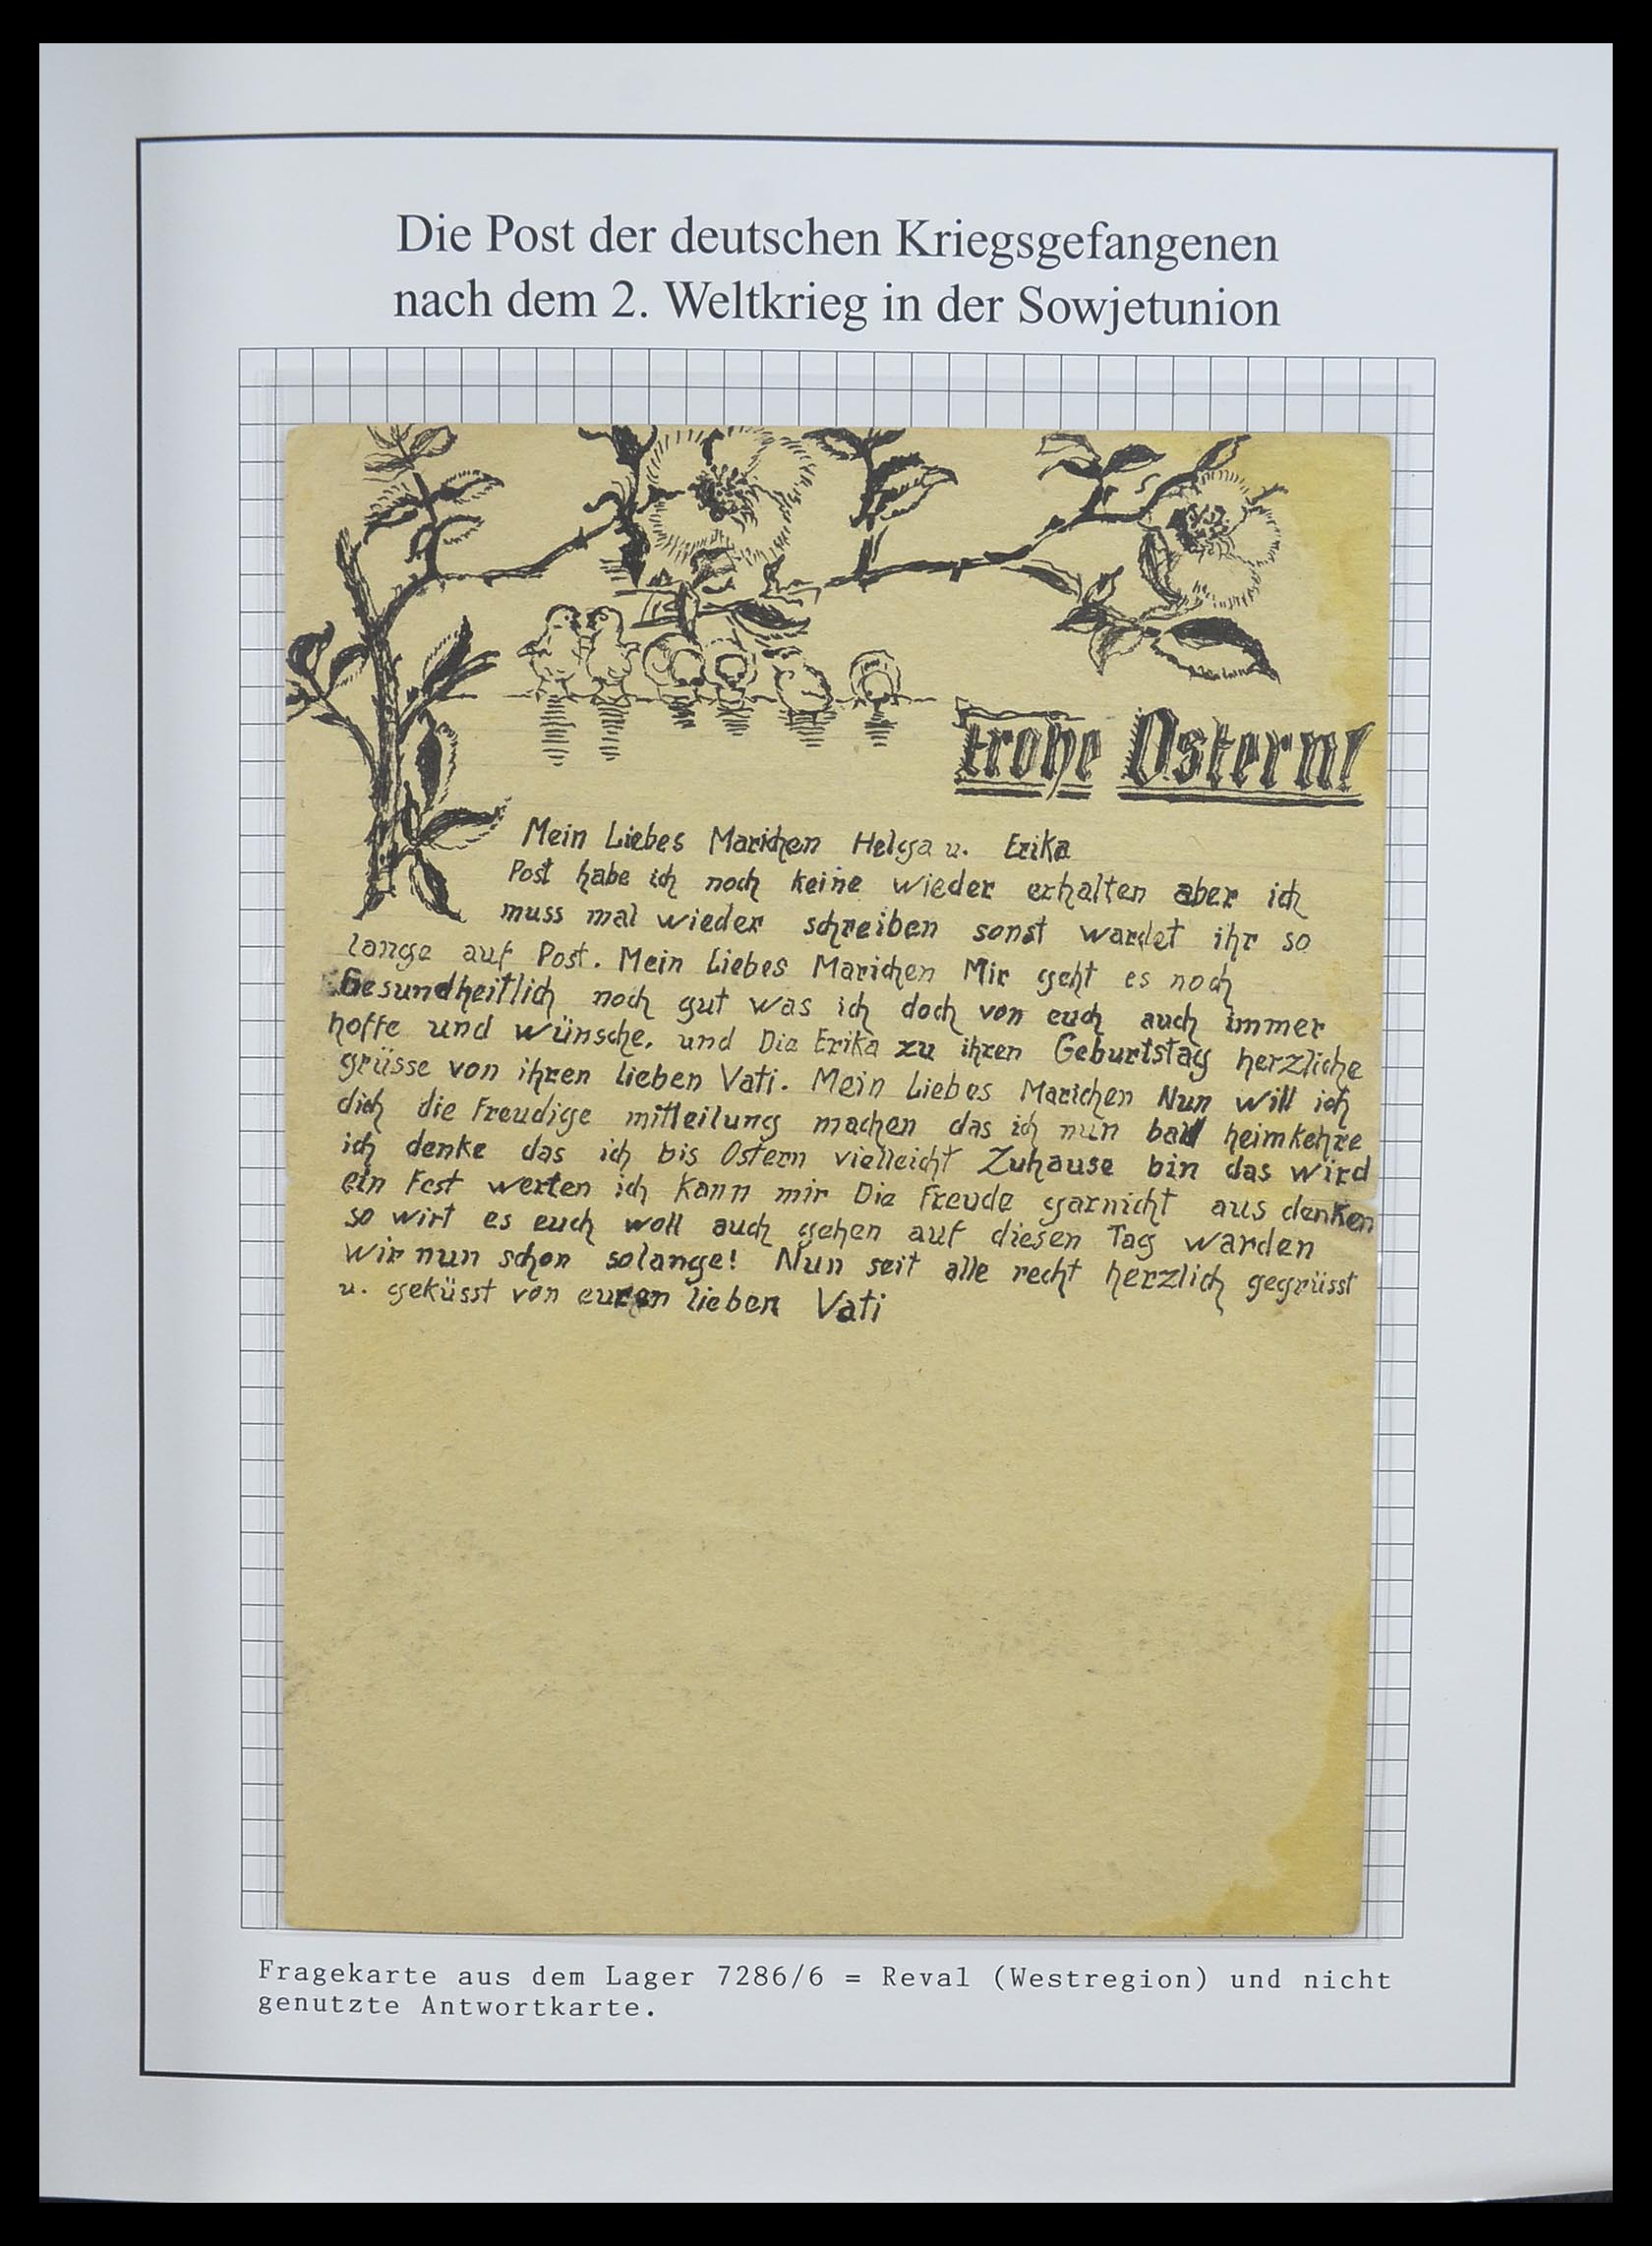 Die Post der deutschen Kriegsgefangenen
nach dem 2. Weltkrieg in der Sowjetunion
Frohe Ostern!
Mein Liebes Marichen Helga u. Erika
Post habe ich noch keine wieder erhalten aber ich
muss mal wieder schreiben sonst wardet ihr so
lange auf Post. Mein Liebes Marichen Mir geht es noch
Gesundheitlich noch gut was ich doch von euch auch immer
hoffe und wünsche. und Die Erika zu ihren Geburtstag herzliche
grüsse von ihren lieben Vati. Mein Liebes Marichen Nun will ich
dich die Freudige mitteilung machen das ich nun bald heimkehre
ich denke das ich bis Ostern vielleicht Zuhause bin das wird
ein Fest werten ich kann mir Die Freude garnicht aus denken
so wirt es euch woll auch gehen auf diesen Tag warden
wir nun schon solange! Nun seit alle recht herzlich gegrüsst
u. geküsst von euren lieben Vati
Fragekarte aus dem Lager 7286/6 = Reval (Westregion) und nicht
genutzte Antwortkarte.